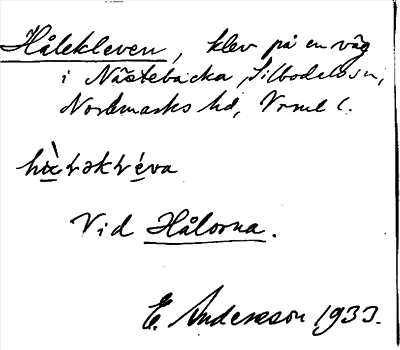 Hålekleven, klev på en väg
i Nästebacka, Silbodalssn,
Nordmarks hd, Vrml l.
Vid Hålorna.
E. Andersson 1933.